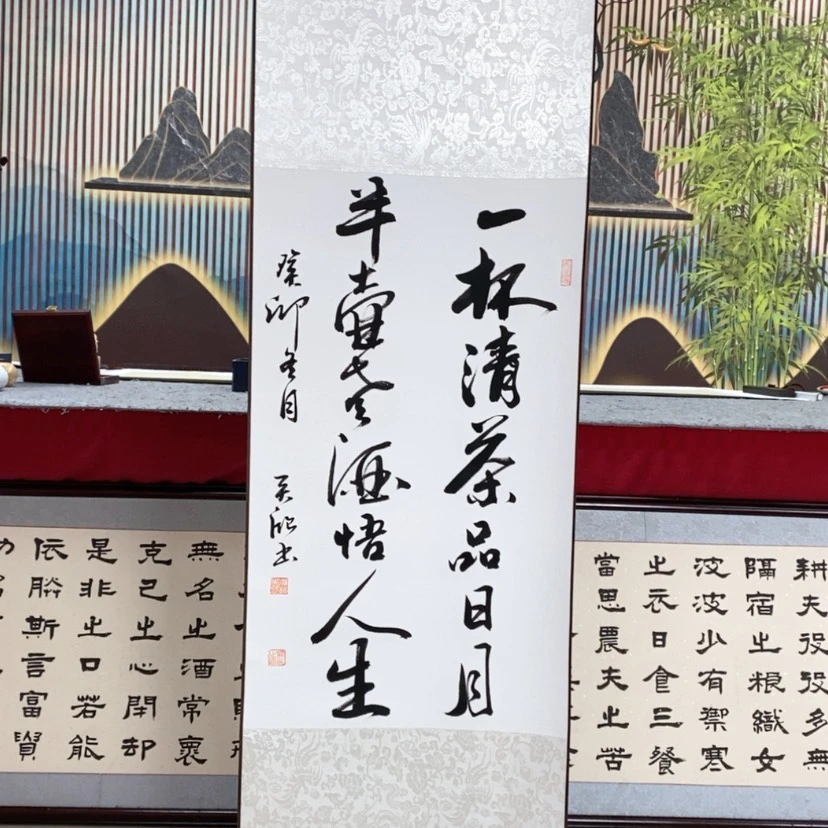 耕夫役役多無
隔宿之粮織女
波波少有禦寒
之衣日食三餐
當思農夫之苦
一杯清茶品日月
半壺老酒悟人生
癸卯冬月
吴欣书
無名之酒常懷
克己之心閉却
是非之口若能
依斯言富貴